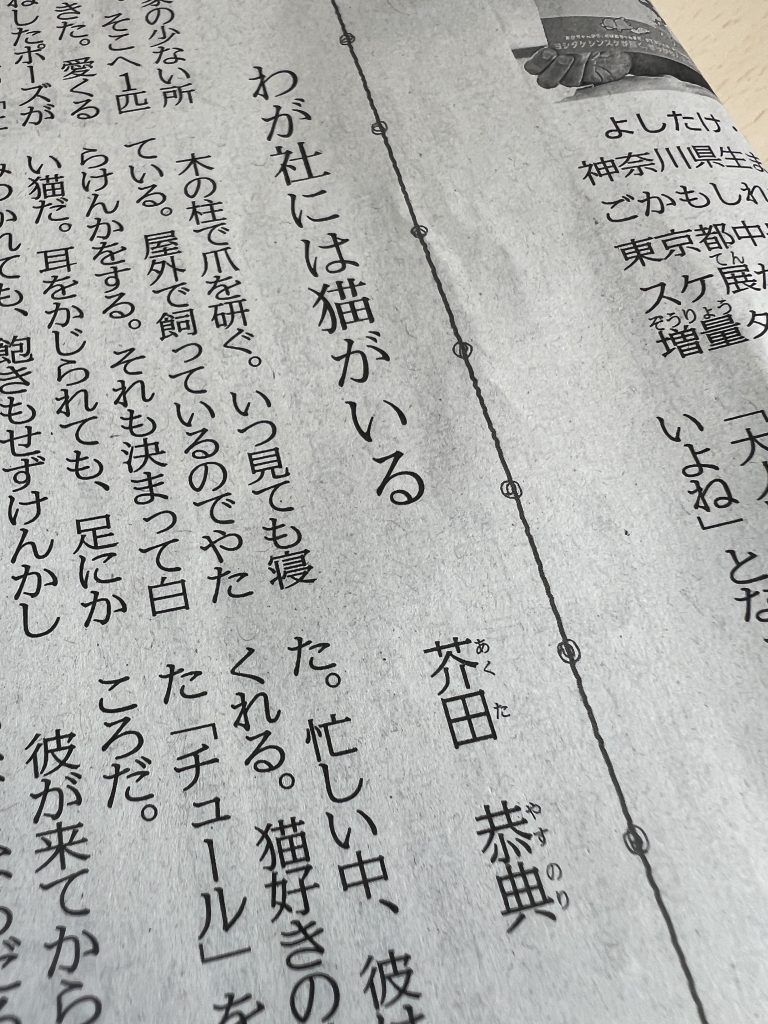 よしたけ、
神奈川県生ま
ごかもしれ
東京都中
スケ展
てん
増量タ
ぞうりょう
「大
いよね」とな
わが社には猫がいる
芥田 恭典
あくた やすのり
の少ない所
。そこへ1匹
きた。愛くる
したポーズが
木の柱で爪を研ぐ。いつ見ても寝
ている。屋外で飼っているのでやた
らけんかをする。それも決まって白
い猫だ。耳をかじられても、足にか
みつかれても、飽きもせずけんかし
た。忙しい中、彼は
くれる。猫好きの
た「チュール」を
ころだ。
彼が来てから